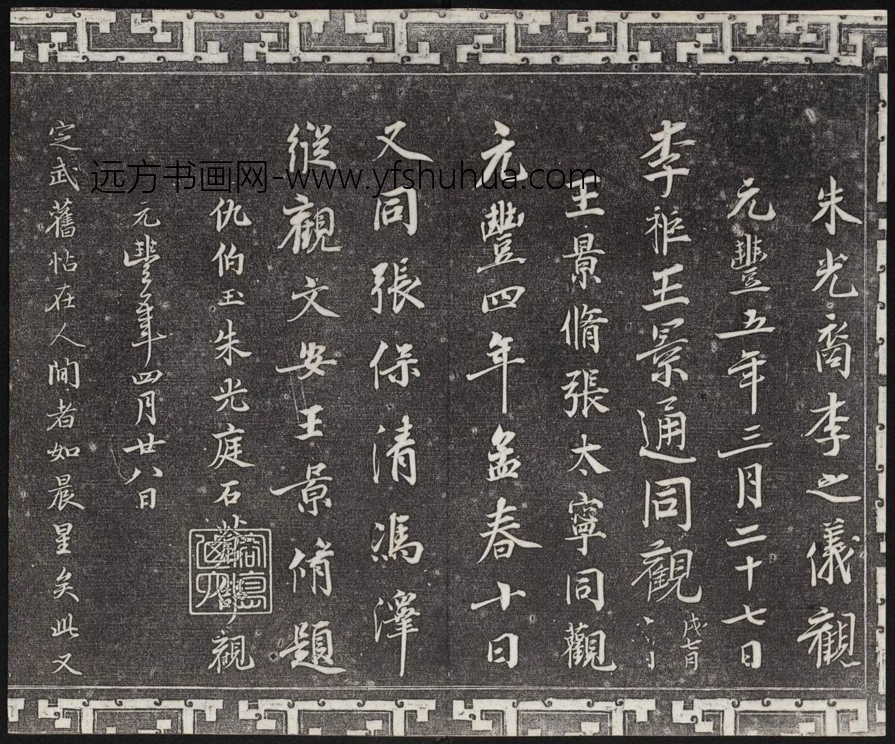 朱光裔李之儀觀
元豐五年三月二十七日
李秬王景通同觀
戊七月
王景脩張太寧同觀
元豐四年孟春十日
又同張保清馮澤
縱觀文安王景脩題
仇伯玉朱光庭石 觀
元豐年四月廿八日
定武舊帖在人間者如晨星矣此又
远方书画网-www.yfshuhua.com